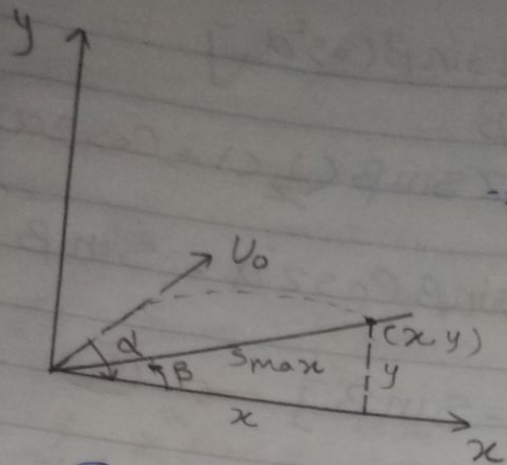 y
U₀
α
β
Smax
(x, y)
y
x
x